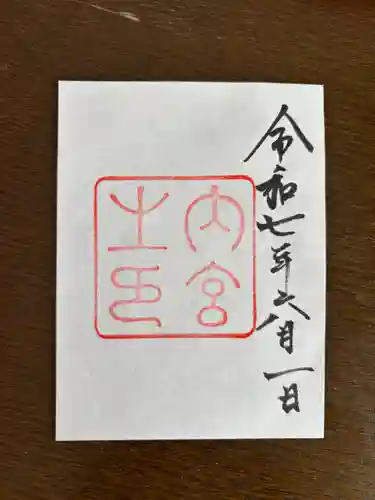 令和七年六月一日
内宮
之印